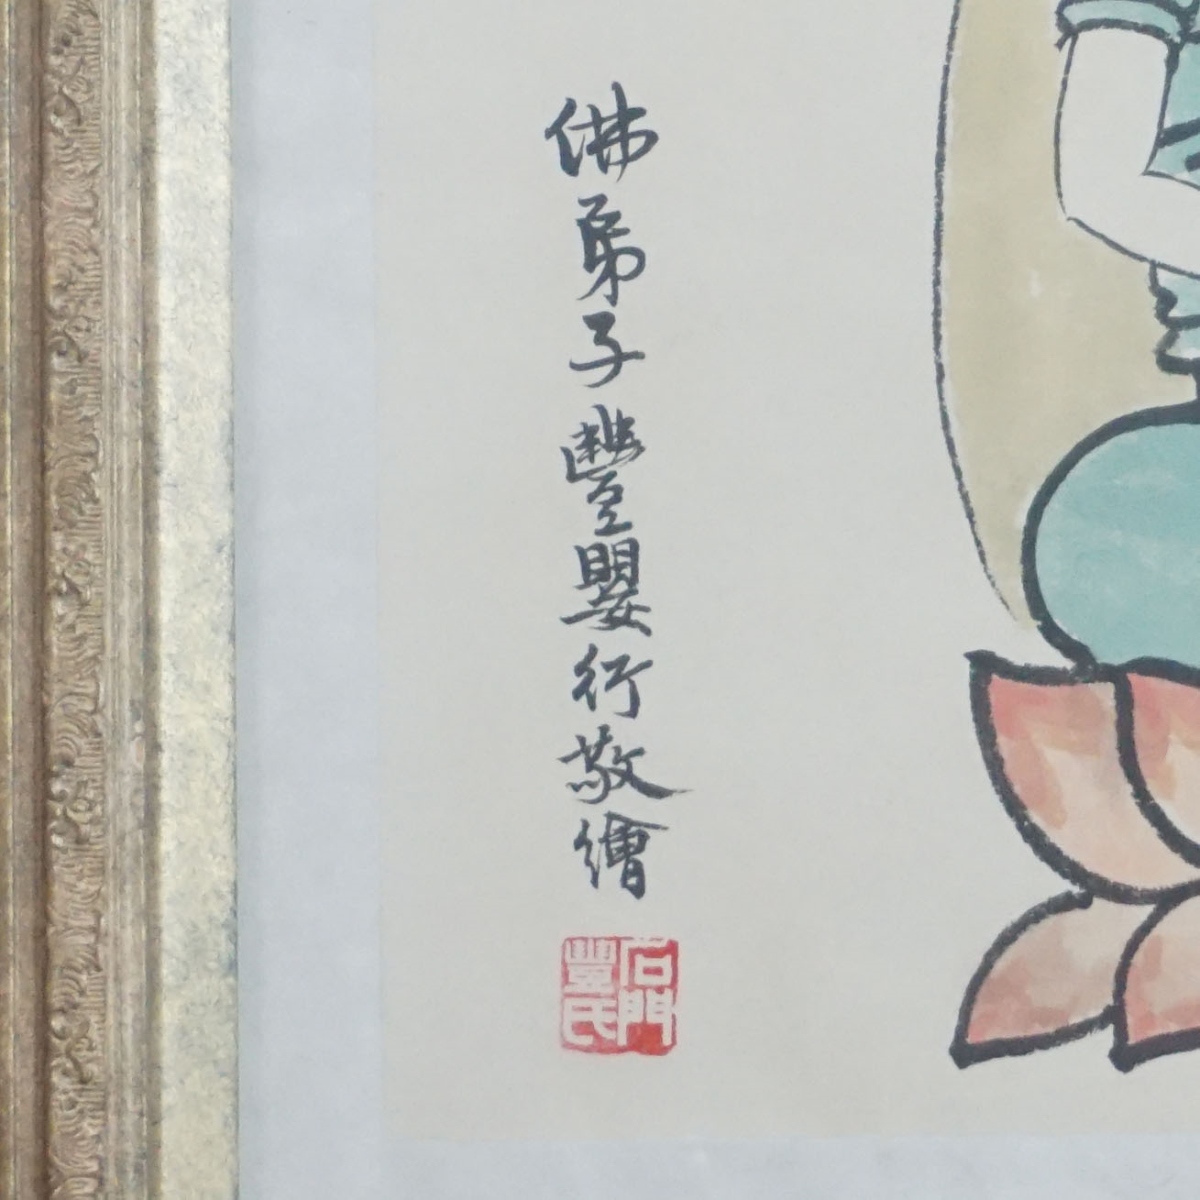 佛弟子豐嬰行敬繪
石門豐氏